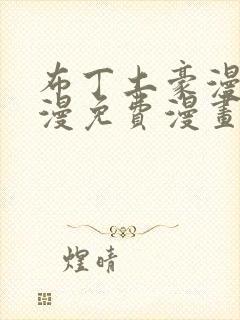 布丁土豪漫
漫免費漫畫
煌晴